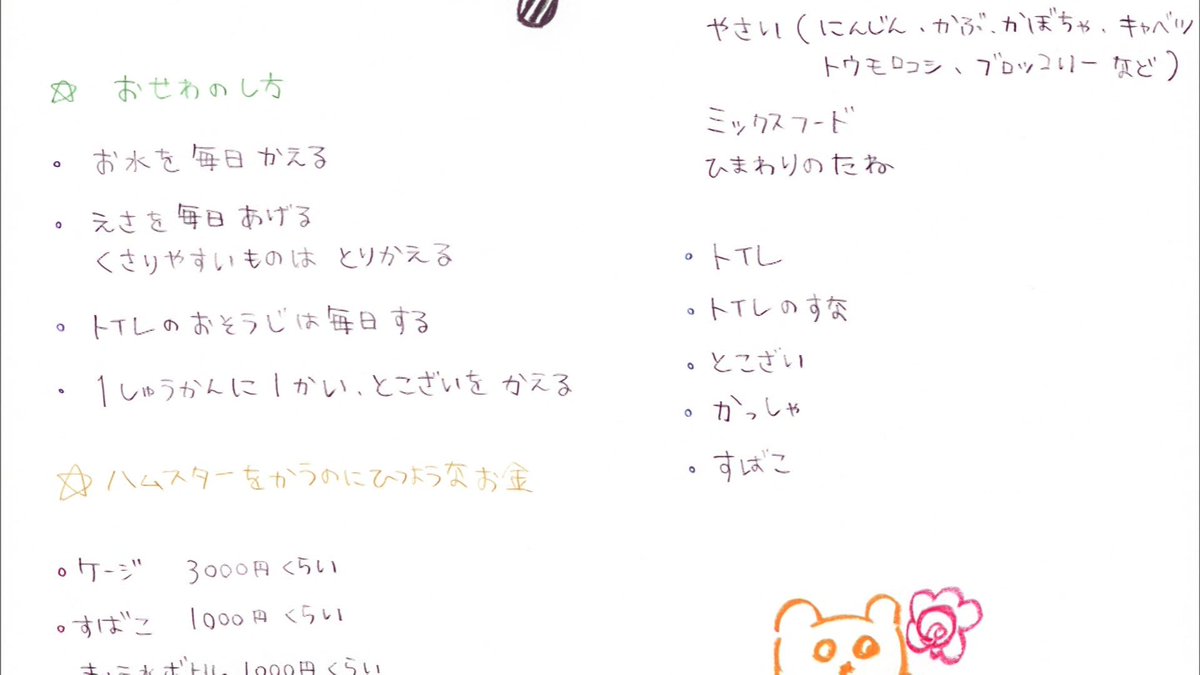 ☆ おせわのし方
・ お水を毎日かえる
・ えさを毎日あげる
くさりやすいものは とりかえる
・ トイレのおそうじは毎日する
・ 1しゅうかんに1かい、とこざいを かえる
☆ ハムスターをかうのにひつようなお金
・ ケージ 3000円くらい
・ すばこ 1000円くらい
ボトル 1000円くらい
やさい(にんじん、かぶ、かぼちゃ、キャベツ
トウモロコシ、ブロッコリーなど)
ミックスフード
ひまわりのたね
・ トイレ
・ トイレのすな
・ とこざい
・ かっしゃ
・ すばこ